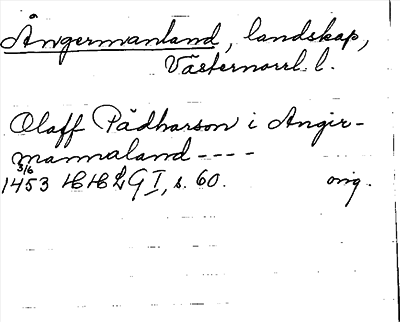 Ångermanland, landskap,
Västernorrl. l.
Olaff Pädharson i Angir-
mannaland ----
3/6
1453 HHLG I, s. 60. orig.